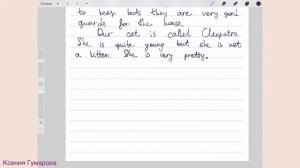 to keep but they are very good
guards for the house.
Our cat is called Cleopatra.
She is quite young but she is not
a kitten. She is very pretty.
Ксения Гумарова